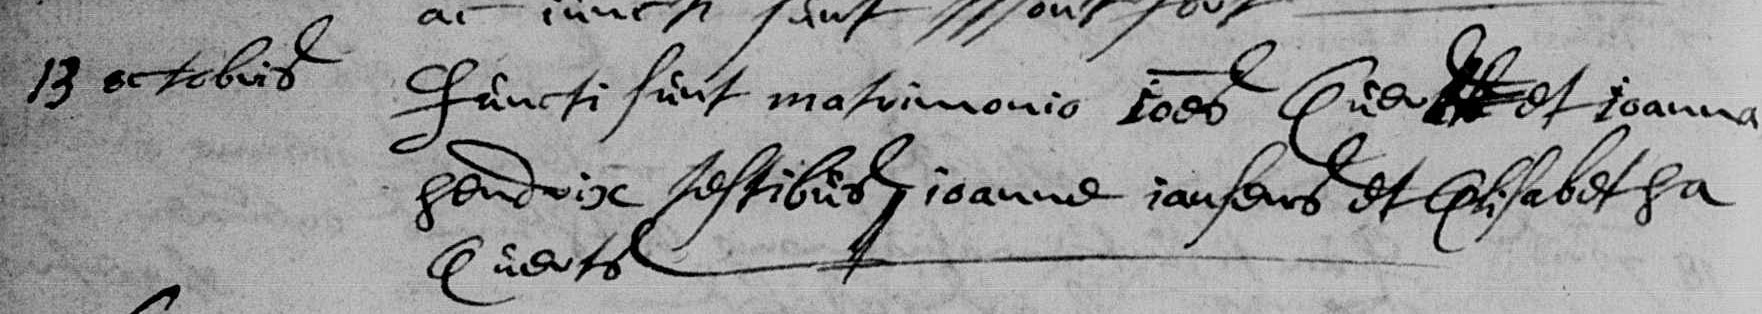 ac iuncti sunt
13 octobris Juncti sunt matrimonio ioēs Cuerts et ioanna
hendrix testibus ioanne iansens et Elisabetha
Cuerts